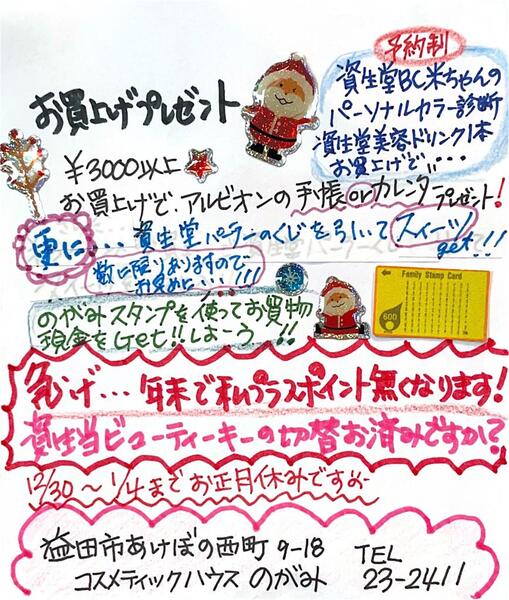 予約制
資生堂BC米ちゃんの
パーソナルカラー診断
資生堂美容ドリンク1本
お買上げで・・・
お買上げプレゼント
¥3000以上
お買上げで、アルビオンの手帳orカレンダープレゼント!
更に・・・資生堂パーラーのくじを引いてスイーツ
get!!
数に限りがありますので
お早めに・・・!!!
のがみスタンプを使ってお買物
現金をGet!!しよーう!!
Family Stamp Card
600
急げ・・・年末で私プラスポイント無くなります!
資生当ビューティーキーの切替お済みですか?
12/30〜1/4までお正月休みですよ
益田市あけぼの西町9-18 TEL
コスメティックハウス のがみ 23-2411